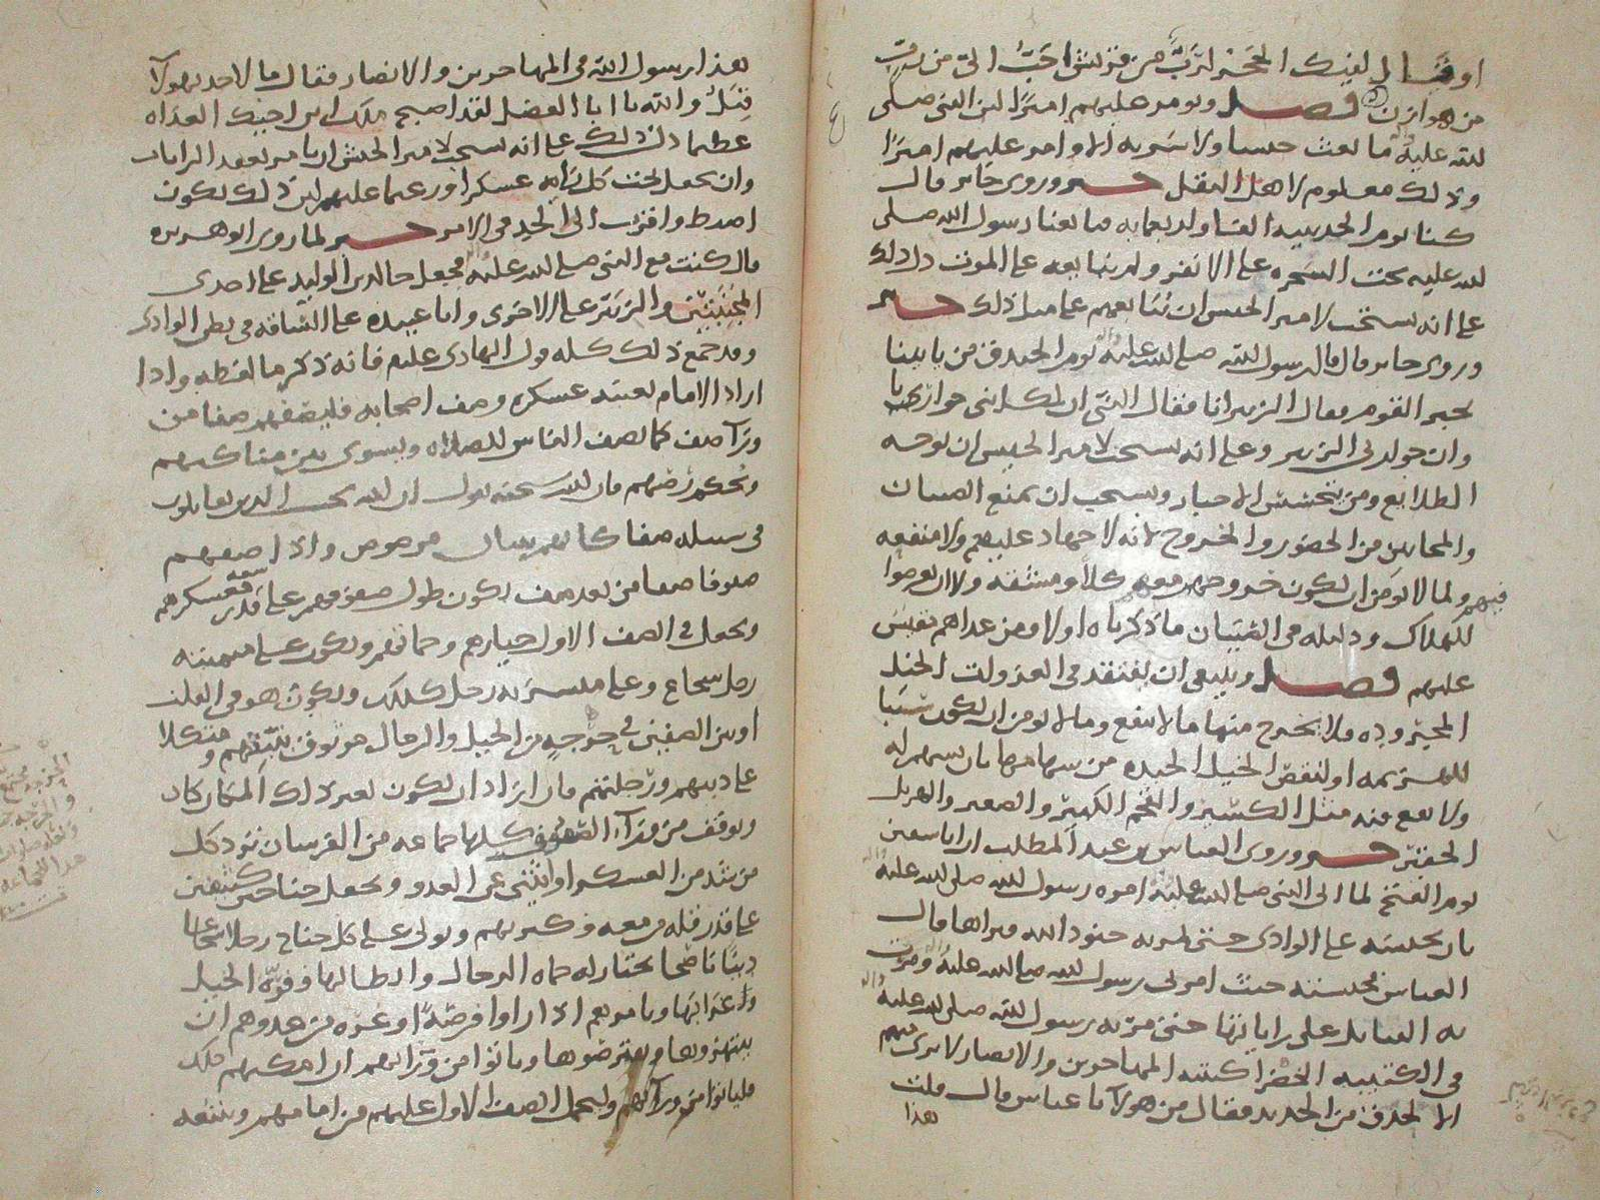 او قال لفيك الحجر لرب من قريش احب الي من رب
من هوازن فصل ويومر عليهم اميرا لان النبي صلى
الله عليه ما بعث جيشا ولا سرية الا وامر عليهم اميرا
وذلك معلوم لاهل النقل خبر وروى جابر قال
كنا يوم الحديبيه الفا واربعمايه فبايعنا رسول الله صلى
الله عليه تحت الشجره على الا نفر ولم نبايعه على الموت دل ذلك
على انه يستحب لامير الجيش ان يبايعهم على مثل ذلك خبر
وروى جابر قال قال رسول الله صلى الله عليه يوم الخندق من ياتينا
بخبر القوم فقال الزبير انا فقال النبي ان لكل نبي حواريا
وان حواري الزبير وعلى انه يستحب لامير الجيش ان يوجه
الطلايع ومن يتجسس الاخبار ويستحب ان يمنع الصبيان
والمجانين من الحضور والخروج لانه لا جهاد عليهم ولا منفعه
فيهم ولما لا يومن ان يكون خروجهم معهم كلا ومشقه ولان يعرضوا
للهلاك ودليله في الصبيان ما ذكرناه اولا ومن عداهم نقيس
عليهم فصل وينبغي ان يفتقد في الغزوات الخيل
المجيز وده فلا يخرج منها ما لا ينفع وما لا يومن ان يكون سببا
للهزيمه او لنقص الخيل الجيده من سهامها بان يسهم له
ولا نفع فيه مثل الكسير والقحم الكبير والصغير والهزيل
خبر وروى العباس بن عبد المطلب ان ابا سفين
يوم الفتح لما اتى النبي صلى الله عليه امره رسول الله صلى الله عليه
بان يحبسه على الوادي حتى تمر به جنود الله فيراها قال
العباس فحبسته حيث امرني رسول الله صلى الله عليه ومرت
به القبايل على راياتها حتى مر به رسول الله صلى الله عليه
في الكتيبه الخضرا كتيبة المهاجرين والانصار لا يرى منهم
الا الحدق من الحديد فقال من هولا يا عباس قال قلت
هذا
هذا رسول الله في المهاجرين والانصار فقال ما لاحد بهولا
قبل والله يا ابا الفضل لقد اصبح ملك ابن اخيك الغداه
عظيما دل ذلك على انه يستحب لامير الجيش ان يامر بعقد الرايات
وان يجعل تحت كل رايه عسكرا وزعيما عليهم لان ذلك يكون
اضبط واقرب الى الجد في الامر خبر لما روى ابو هريره
قال كنت مع النبي صلى الله عليه فجعل خالد بن الوليد على احدى
المجنبتين والزبير على الاخرى وابا عبيده على الساقه في بطن الوادي
وقد جمع ذلك كله قول الهادي عليه فانه ذكر ما لفظه واذا
اراد الامام تعبئة عسكره وصف اصحابه فليصفهم صفا من
ورآ صف كما يصف الناس للصلاه ويسوى بين مناكبهم
ويحكم رصهم فان الله سبحنه يقول ان الله يحب الذين يقاتلون
في سبيله صفا كانهم بنيان مرصوص واذا صفهم
صفوفا صفا من بعد صف يكون طول صفوفهم على قدر سعه معسكرهم
ويجعل في الصف الاول خيارهم وحماتهم ويكون على ميمنته
رجل شجاع وعلى ميسرته رجل كذلك ويكون هو في القلب
او بين الصفين في من الخيل والرجال موثوق
على دينهم ورجلتهم فان اراد ان يكون بغير ذلك المكان كان
ويوقف من ورآء الصفوف كلها جماعه من الفرسان ترد كل
من شد من العسكر او انثنى عن العدو ويجعل جناحين كثيفين
على قدر قله من معه وكثرتهم ويولى على كل جناح رجلا شجاعا
دينا ناصحا يختار له حماه الرجال وابطالها وفره الخيل
ويامرهم اذا راوا فرصة او غره من عدوهم ان
ينتهزوها ويعترضوها وياتوا من ورايهم ان امكنهم ذلك
فلياتوا من ورآئهم وليحمل الصف الاول عليهم من امامهم ويتبعه